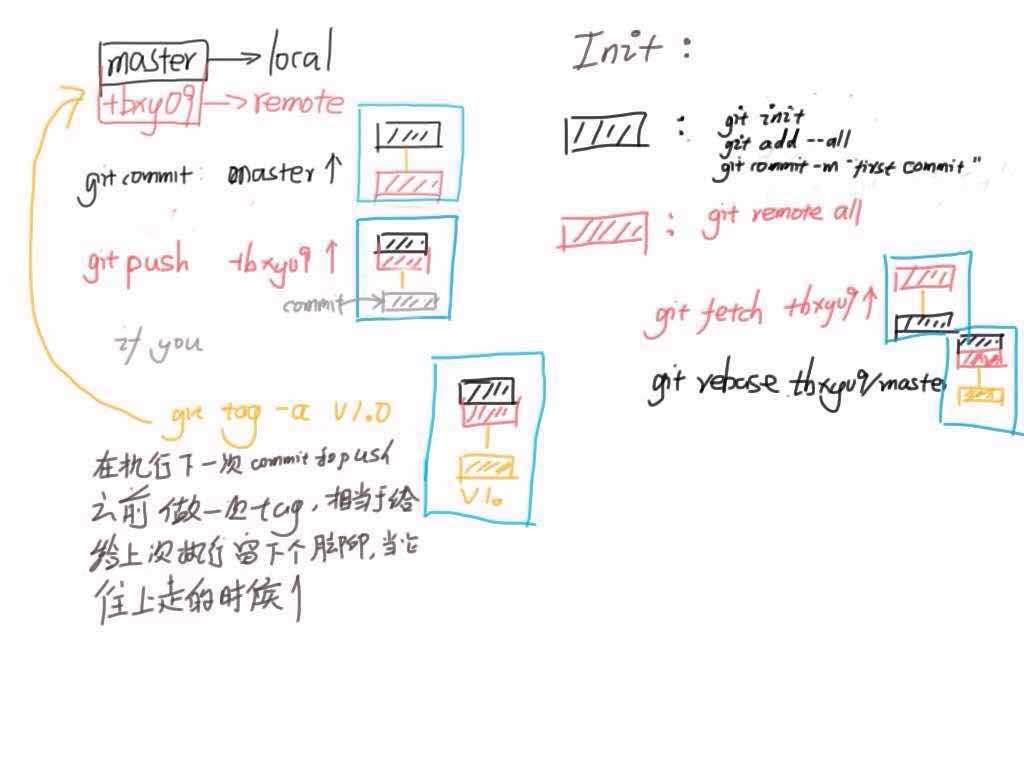 master → local
tbxy09 → remote
git commit: master ↑
git push tbxy09 ↑
commit →
if you
git tag -a V1.0
在执行下一次commit和push
之前 做一次tag，相当于给
给上次执行留下个脚印，当它
往上走的时候↑
V1.
Init :
: git init
git add --all
git commit -m "first commit"
: git remote all
git fetch tbxy09 ↑
git rebase tbxy09/master